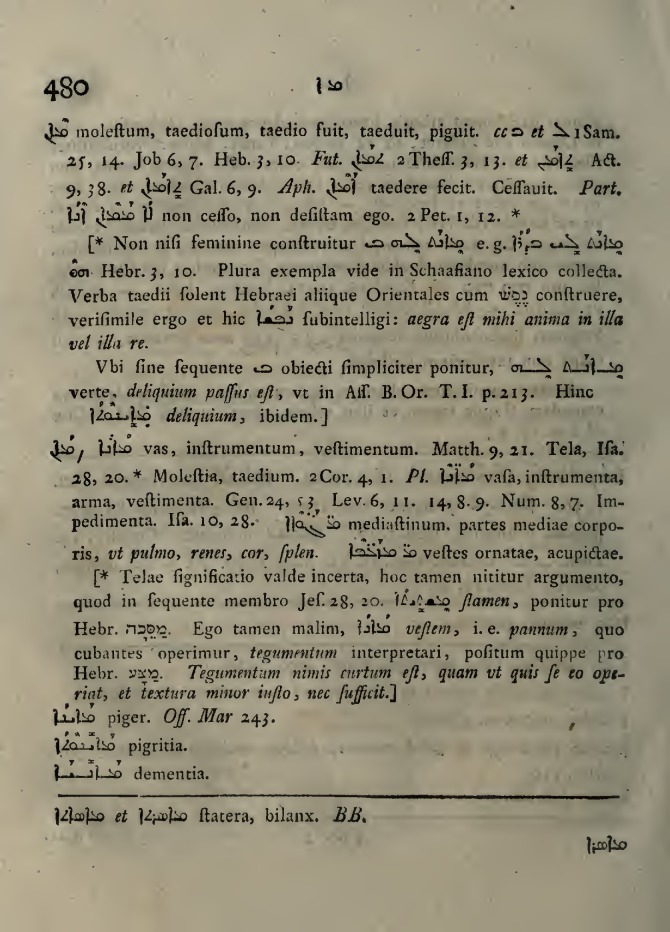 480 ܡܐ
ܡܐܢ moleſtum, taedioſum, taedio fuit, taeduit, piguit. cc ܒ et ܥܠ 1 Sam.
25, 14. Job 6, 7. Heb. 3, 10. Fut. 2 Theſſ. 3, 13. et Act.
9, 38. et Gal. 6, 9. Aph. ܐܡܐܢ taedere fecit. Ceſſauit. Part.
ܠܐ ܡܡܐܢ ܐܢܐ non ceſſo, non deſiſtam ego. 2 Pet. 1, 12. *
[* Non niſi feminine conſtruitur ܡܐܢܬ ܠܗ ܒ e. g. ܡܐܢܬ ܠܝ ܒܕܪܐ
ܗܘ Hebr. 3, 10. Plura exempla vide in Schaafiano lexico collecta.
Verba taedii ſolent Hebraei aliique Orientales cum נֶפֶשׁ conſtruere,
veriſimile ergo et hic ܢܦܫܐ ſubintelligi: aegra eſt mihi anima in illa
vel illa re.
Vbi ſine ſequente ܒ obiecti ſimpliciter ponitur, ܡܐܢܬ ܠܗ
verte, deliquium paſſus eſt, vt in Aſſ. B. Or. T. I. p. 213. Hinc
deliquium, ibidem.]
ܡܐܢ, ܡܐܢܐ vas, inſtrumentum, veſtimentum. Matth. 9, 21. Tela, Iſa.
28, 20. * Moleſtia, taedium. 2 Cor. 4, 1. Pl. ܡܐܢܐ vaſa, inſtrumenta,
arma, veſtimenta. Gen. 24, 53, Lev. 6, 11. 14, 8. 9. Num. 8, 7. Im-
pedimenta. Iſa. 10, 28. mediaſtinum. partes mediae corpo-
ris, vt pulmo, renes, cor, ſplen. veſtes ornatae, acupictae.
[* Telae ſignificatio valde incerta, hoc tamen nititur argumento,
quod in ſequente membro Jeſ. 28, 20. ſtamen, ponitur pro
Hebr. מַסֵּכָה. Ego tamen malim, ܡܐܢܐ veſtem, i. e. pannum, quo
cubantes operimur, tegumentum interpretari, poſitum quippe pro
Hebr. מַצָּע. Tegumentum nimis curtum eſt, quam vt quis ſe eo ope-
riat, et textura minor iuſto, nec ſufficit.]
ܡܐܝܢܐ piger. Off. Mar 243.
ܡܐܝܢܘܬܐ pigritia.
dementia.
ܡܐܣܬܐ et ܡܐܣܪܬܐ ſtatera, bilanx. BB.
ܡܐܣܪܐ